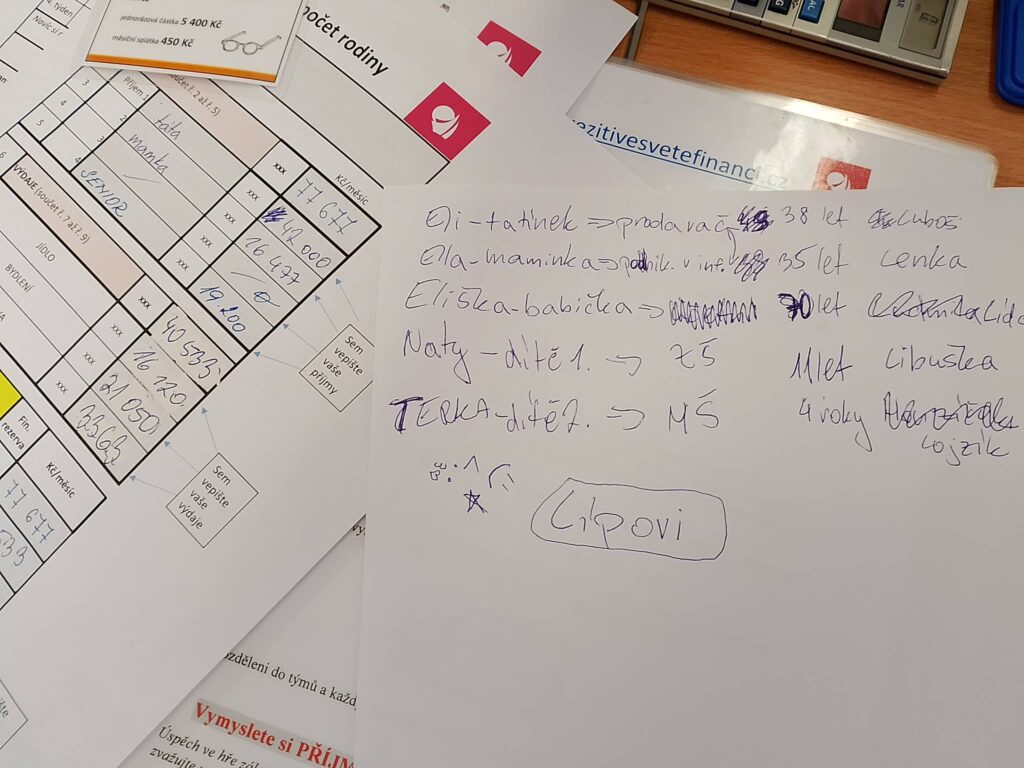 4. týden
Novic si r
jednorázová částka 5 400 Kč
měsíční splátka 450 Kč
očet rodiny
Kč/měsíc
Příjem (součet ř. 2 až ř. 5)
xxx
77 677
3
2
táta
xxx
42 000
4
3
mamka
xxx
16 477
5
4
xxx
SENIOR
xxx
19.200
6
VÝDAJE (součet ř. 7 až ř. 9)
xxx
40 533
JÍDLO
xxx
16 120
BYDLENÍ
xxx
21 050
xxx
3363
Sem
vepište
vaše
příjmy
Sem
vepište
vaše
výdaje
Fin.
rezerva
Kč/měsíc
77 677
533
ezitivesvetefinanci.cz
Eli - tatínek => prodavač 38 let Luboš
Ella - maminka => podnik. v inf. 35 let Lenka
Eliška - babička -> 70 let Lída
Naty - dítě 1. -> ZŠ 11 let Libuška
TERKA - dítě 2. -> MŠ 4 roky Lojzík
Lípovi
ozdělení do týmů a každ
Vymyslete si PŘÍJM
Úspěch ve hře zál
zvažujte